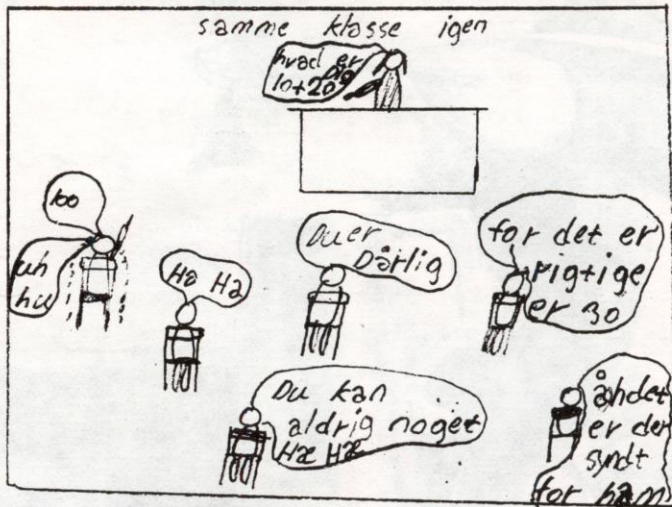 samme klasse igen
hvad er
10+20?
100
uh
hu
Hæ Hæ
Du er
Dårlig
for det er
rigtige
er 30
Du kan
aldrig noget
Hæ Hæ
åh det
er der
syndt
for ham